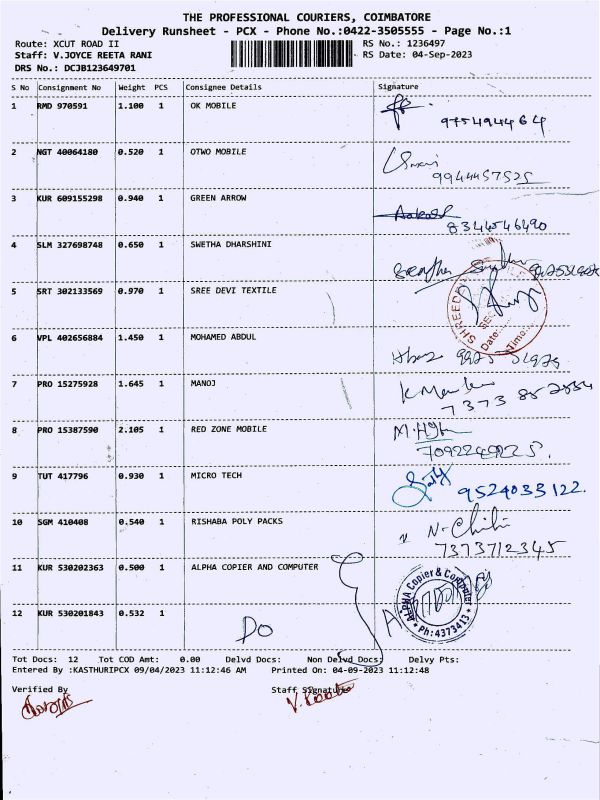 THE PROFESSIONAL COURIERS, COIMBATORE
Delivery Runsheet - PCX - Phone No.:0422-3505555 - Page No.:1
Route: XCUT ROAD II
RS No.: 1236497
Staff: V.JOYCE REETA RANI
RS Date: 04-Sep-2023
DRS No.: DCJB123649701
S No Consignment No Weight PCS Consignee Details Signature
1 RMD 970591 1.100 1 OK MOBILE
9754944464
2 NGT 40064180 0.520 1 OTWO MOBILE
9944457525
3 KUR 609155298 0.940 1 GREEN ARROW
8344546490
4 SLM 327698748 0.650 1 SWETHA DHARSHINI
5 SRT 302133569 0.970 1 SREE DEVI TEXTILE
SHREEDEVI
Date: Time:
6 VPL 402656884 1.450 1 MOHAMED ABDUL
7 PRO 15275928 1.645 1 MANOJ
8 PRO 15387590 2.105 1 RED ZONE MOBILE
7092249225.
9 TUT 417796 0.930 1 MICRO TECH
9524033122.
10 SGM 410408 0.540 1 RISHABA POLY PACKS
7373712345
11 KUR 530202363 0.500 1 ALPHA COPIER AND COMPUTER
ALPHA Copier & Computer
Ph: 4373413
12 KUR 530201843 0.532 1
DO
Tot Docs: 12 Tot COD Amt: 0.00 Delvd Docs: Non Delvd Docs: Delvy Pts:
Entered By :KASTHURIPCX 09/04/2023 11:12:46 AM Printed On: 04-09-2023 11:12:48
Verified By Staff Signature